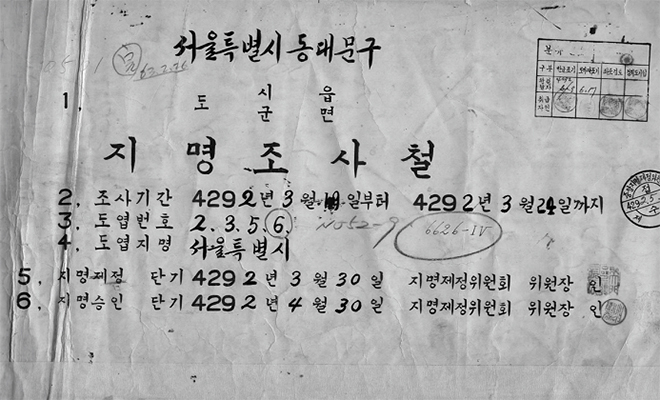 서울특별시 동대문구
63.2.26
1. 도 시 읍
군 면
지명조사철
2. 조사기간 4292년 3월 일부터 4292년 3월 24일까지
3. 도엽번호 2.3.5.6. NO52-9 6626-IV
4. 도엽지명 서울특별시
5. 지명제정 단기 4292년 3월 30일 지명제정위원회 위원장 인
6. 지명승인 단기 4292년 4월 30일 지명제정위원회 위원장 인